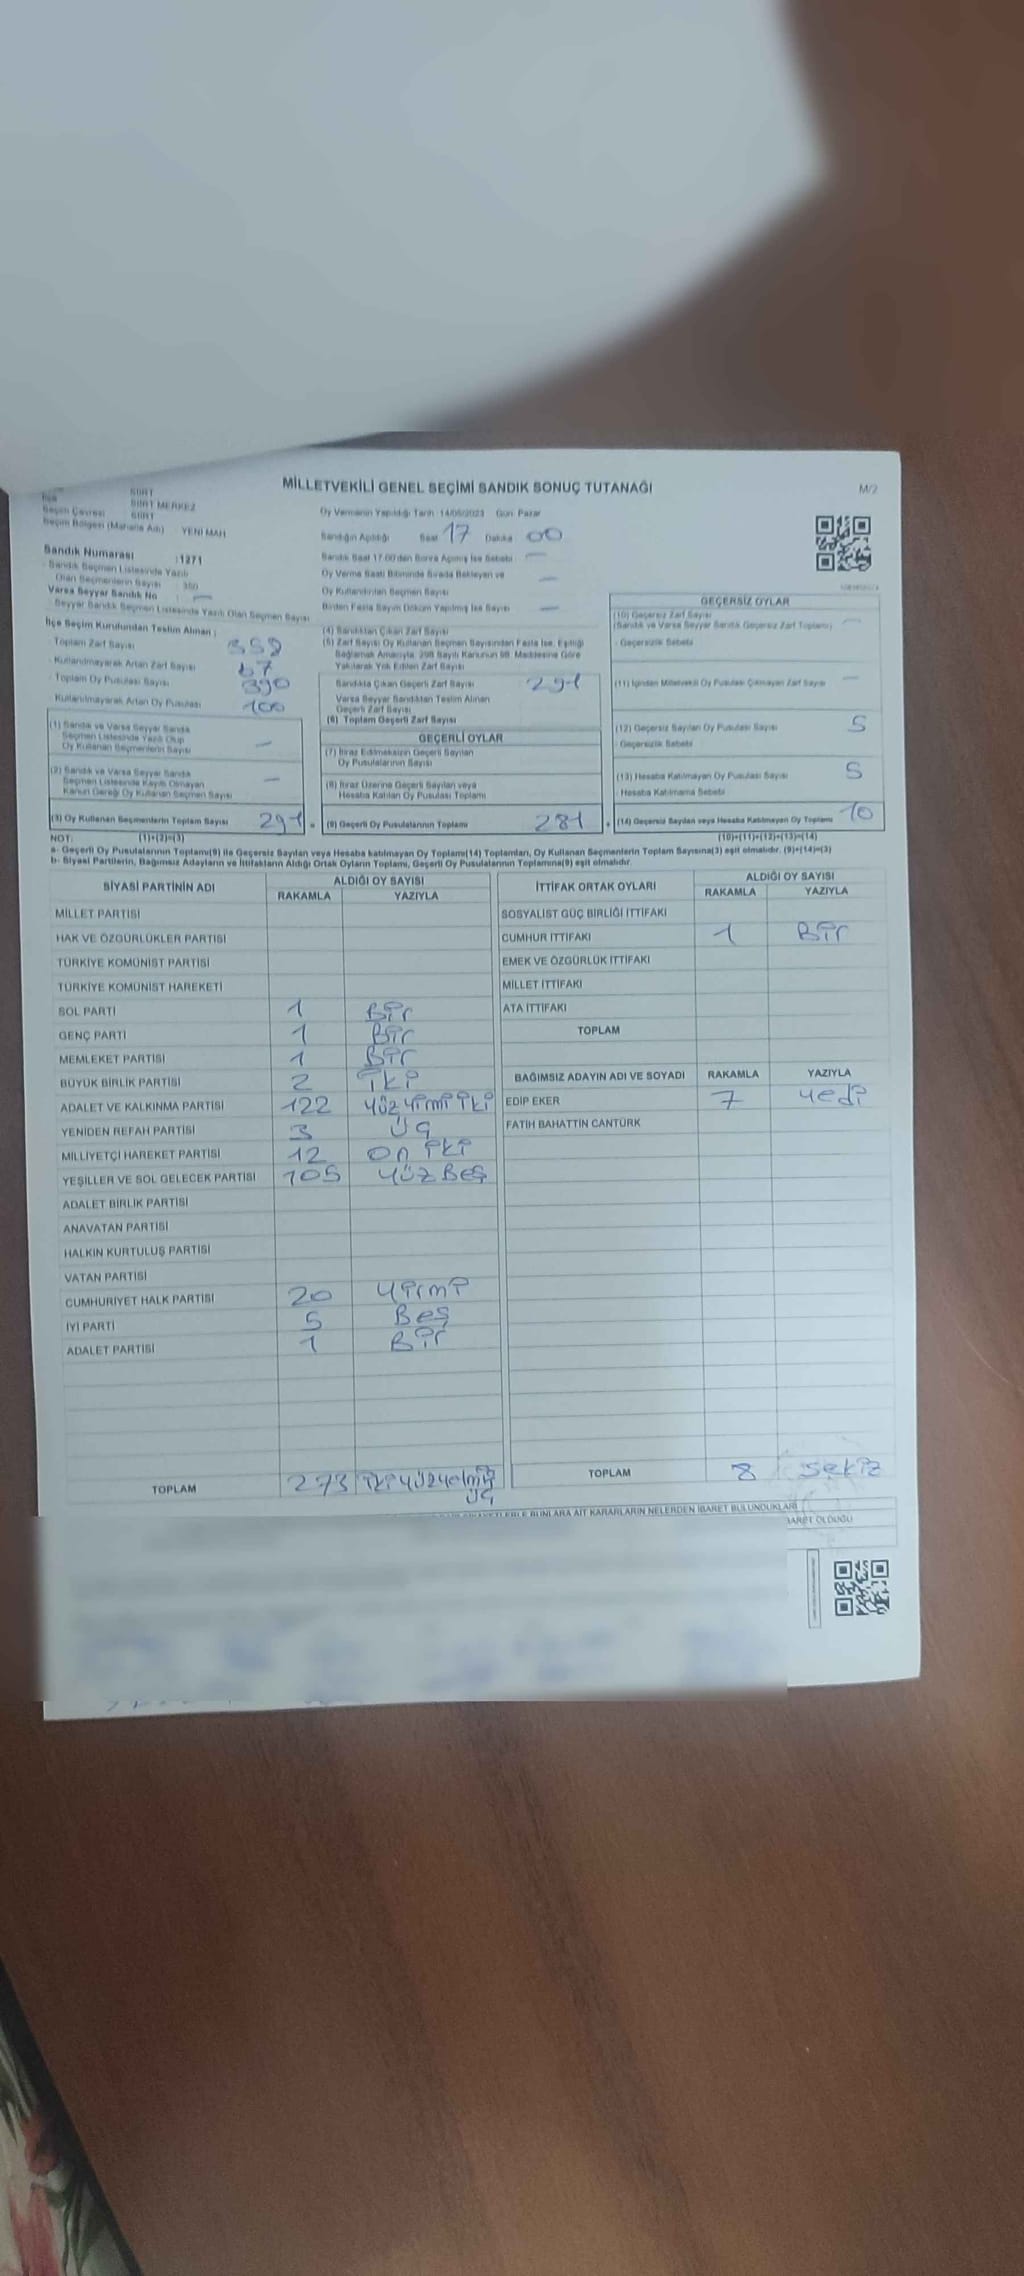 MİLLETVEKİLİ GENEL SEÇİMİ SANDIK SONUÇ TUTANAĞI
M/2
İlçe SİİRT MERKEZ
Seçim Çevresi SİİRT
Seçim Bölgesi (Mahalle Adı) YENİ MAH
Sandık Numarası :1271
Sandık Seçmen Listesinde Yazılı
Olan Seçmenlerin Sayısı
Varsa Seyyar Sandık No : —
Seyyar Sandık Seçmen Listesinde Yazılı Olan Seçmen Sayısı
İlçe Seçim Kurulundan Teslim Alınan :
Toplam Zarf Sayısı 359
Kullanılmayarak Artan Zarf Sayısı 67
Toplam Oy Pusulası Sayısı 390
Kullanılmayarak Artan Oy Pusulası 100
(1) Sandık ve Varsa Seyyar Sandık
Seçmen Listesinde Yazılı Olup
Oy Kullanan Seçmenlerin Sayısı —
(2) Sandık ve Varsa Seyyar Sandık
Seçmen Listesinde Kayıtlı Olmayan
Kanun Gereği Oy Kullanan Seçmen Sayısı —
(3) Oy Kullanan Seçmenlerin Toplam Sayısı 291 =
Oy Vermenin Yapıldığı Tarih :14/05/2023 Gün: Pazar
Sandığın Açıldığı Saat 17 Dakika 00
Sandık Saat 17.00'den Sonra Açılmış İse Sebebi —
Oy Verme Saati Bitiminde Sırada Bekleyen ve —
Oy Kullandırılan Seçmen Sayısı
Birden Fazla Sayım Döküm Yapılmış İse Sayısı —
(4) Sandıktan Çıkan Zarf Sayısı
(5) Zarf Sayısı Oy Kullanan Seçmen Sayısından Fazla İse, Eşitliği
Sağlamak Amacıyla, 298 Sayılı Kanunun 98. Maddesine Göre
Yakılarak Yok Edilen Zarf Sayısı
Sandıkta Çıkan Geçerli Zarf Sayısı 291
Varsa Seyyar Sandıktan Teslim Alınan
Geçerli Zarf Sayısı
(6) Toplam Geçerli Zarf Sayısı
GEÇERLİ OYLAR
(7) İtiraz Edilmeksizin Geçerli Sayılan
Oy Pusulalarının Sayısı
(8) İtiraz Üzerine Geçerli Sayılan veya
Hesaba Katılan Oy Pusulası Toplamı
(9) Geçerli Oy Pusulalarının Toplamı 281 +
GEÇERSİZ OYLAR
(10) Geçersiz Zarf Sayısı
(Sandık ve Varsa Seyyar Sandık Geçersiz Zarf Toplamı) —
- Geçersizlik Sebebi
(11) İçinden Milletvekili Oy Pusulası Çıkmayan Zarf Sayısı —
(12) Geçersiz Sayılan Oy Pusulası Sayısı 5
- Geçersizlik Sebebi
(13) Hesaba Katılmayan Oy Pusulası Sayısı 5
- Hesaba Katılmama Sebebi
(14) Geçersiz Sayılan veya Hesaba Katılmayan Oy Toplamı 10
NOT: (1)+(2)=(3) (10)+(11)+(12)+(13)=(14)
a- Geçerli Oy Pusulalarının Toplamı(9) ile Geçersiz Sayılan veya Hesaba katılmayan Oy Toplamı(14) Toplamları, Oy Kullanan Seçmenlerin Toplam Sayısına(3) eşit olmalıdır. (9)+(14)=(3)
b- Siyasi Partilerin, Bağımsız Adayların ve İttifakların Aldığı Ortak Oyların Toplamı, Geçerli Oy Pusulalarının Toplamına(9) eşit olmalıdır.
SİYASİ PARTİNİN ADI ALDIĞI OY SAYISI
RAKAMLA YAZIYLA
MİLLET PARTİSİ
HAK VE ÖZGÜRLÜKLER PARTİSİ
TÜRKİYE KOMÜNİST PARTİSİ
TÜRKİYE KOMÜNİST HAREKETİ
SOL PARTİ 1 Bir
GENÇ PARTİ 1 Bir
MEMLEKET PARTİSİ 1 Bir
BÜYÜK BİRLİK PARTİSİ 2 iki
ADALET VE KALKINMA PARTİSİ 122 yüz yirmi iki
YENİDEN REFAH PARTİSİ 3 Üç
MİLLİYETÇİ HAREKET PARTİSİ 12 on iki
YEŞİLLER VE SOL GELECEK PARTİSİ 105 yüz Beş
ADALET BİRLİK PARTİSİ
ANAVATAN PARTİSİ
HALKIN KURTULUŞ PARTİSİ
VATAN PARTİSİ
CUMHURİYET HALK PARTİSİ 20 yirmi
İYİ PARTİ 5 Beş
ADALET PARTİSİ 1 Bir
TOPLAM 273
İTTİFAK ORTAK OYLARI ALDIĞI OY SAYISI
RAKAMLA YAZIYLA
SOSYALİST GÜÇ BİRLİĞİ İTTİFAKI
CUMHUR İTTİFAKI 1 Bir
EMEK VE ÖZGÜRLÜK İTTİFAKI
MİLLET İTTİFAKI
ATA İTTİFAKI
TOPLAM
BAĞIMSIZ ADAYIN ADI VE SOYADI RAKAMLA YAZIYLA
EDİP EKER 7 yedi
FATİH BAHATTİN CANTÜRK
TOPLAM 8 sekiz
BUNLARA AİT KARARLARIN NELERDEN İBARET BULUNDUKLARI
İBARET OLDUĞU